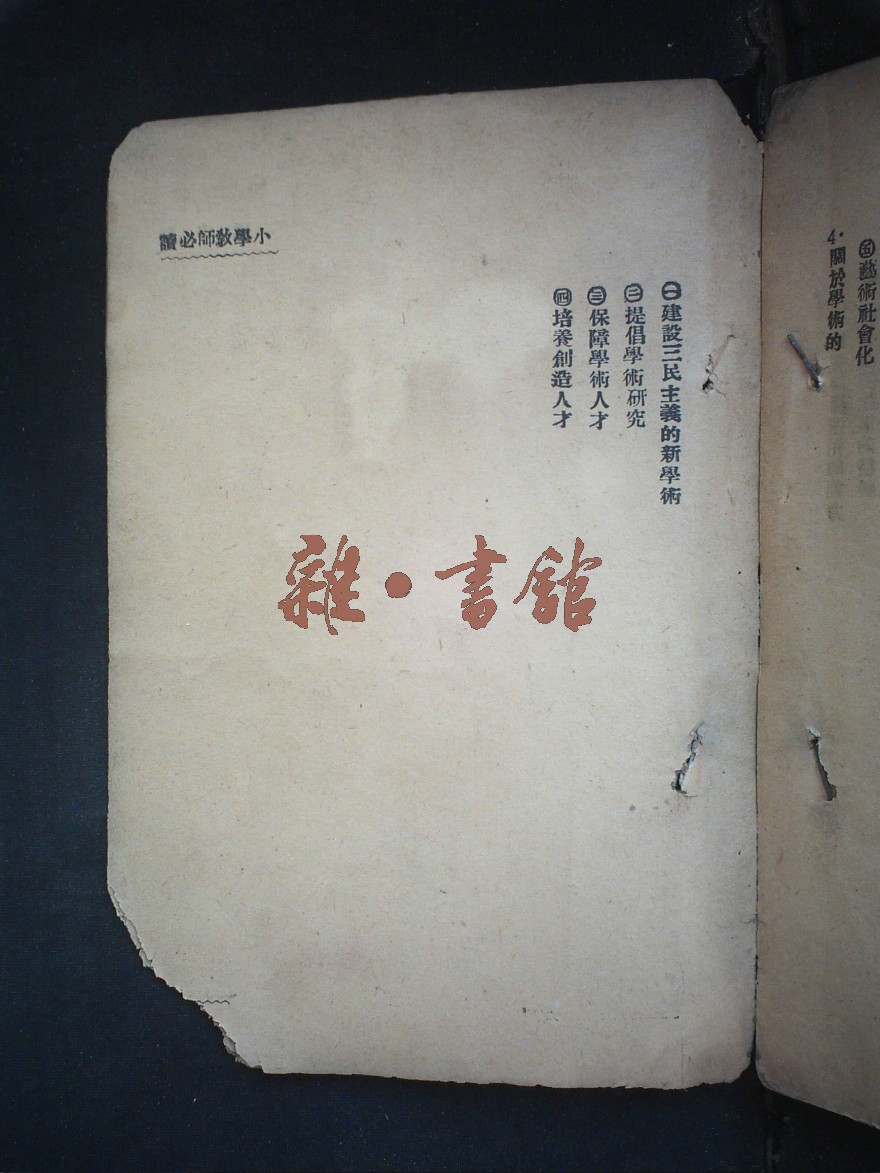 ㊄藝術社會化
4.關於學術的
㊀建設三民主義的新學術
㊁提倡學術研究
㊂保障學術人才
㊃培養創造人才
小學教師必讀
雜·書館